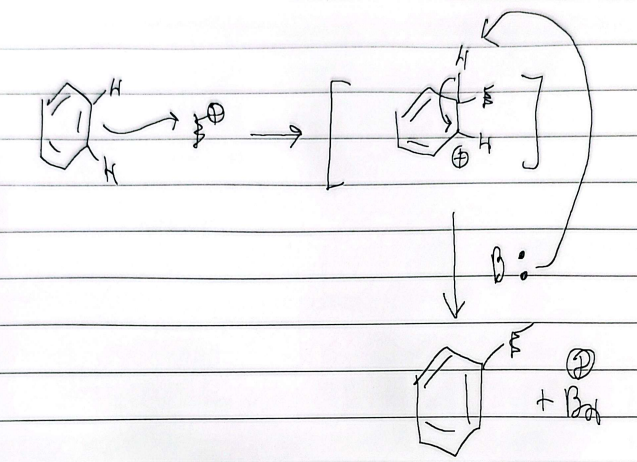 H
H
E⊕
→
[
H
E
H
⊕
]
B:
E
⊕
+ BH